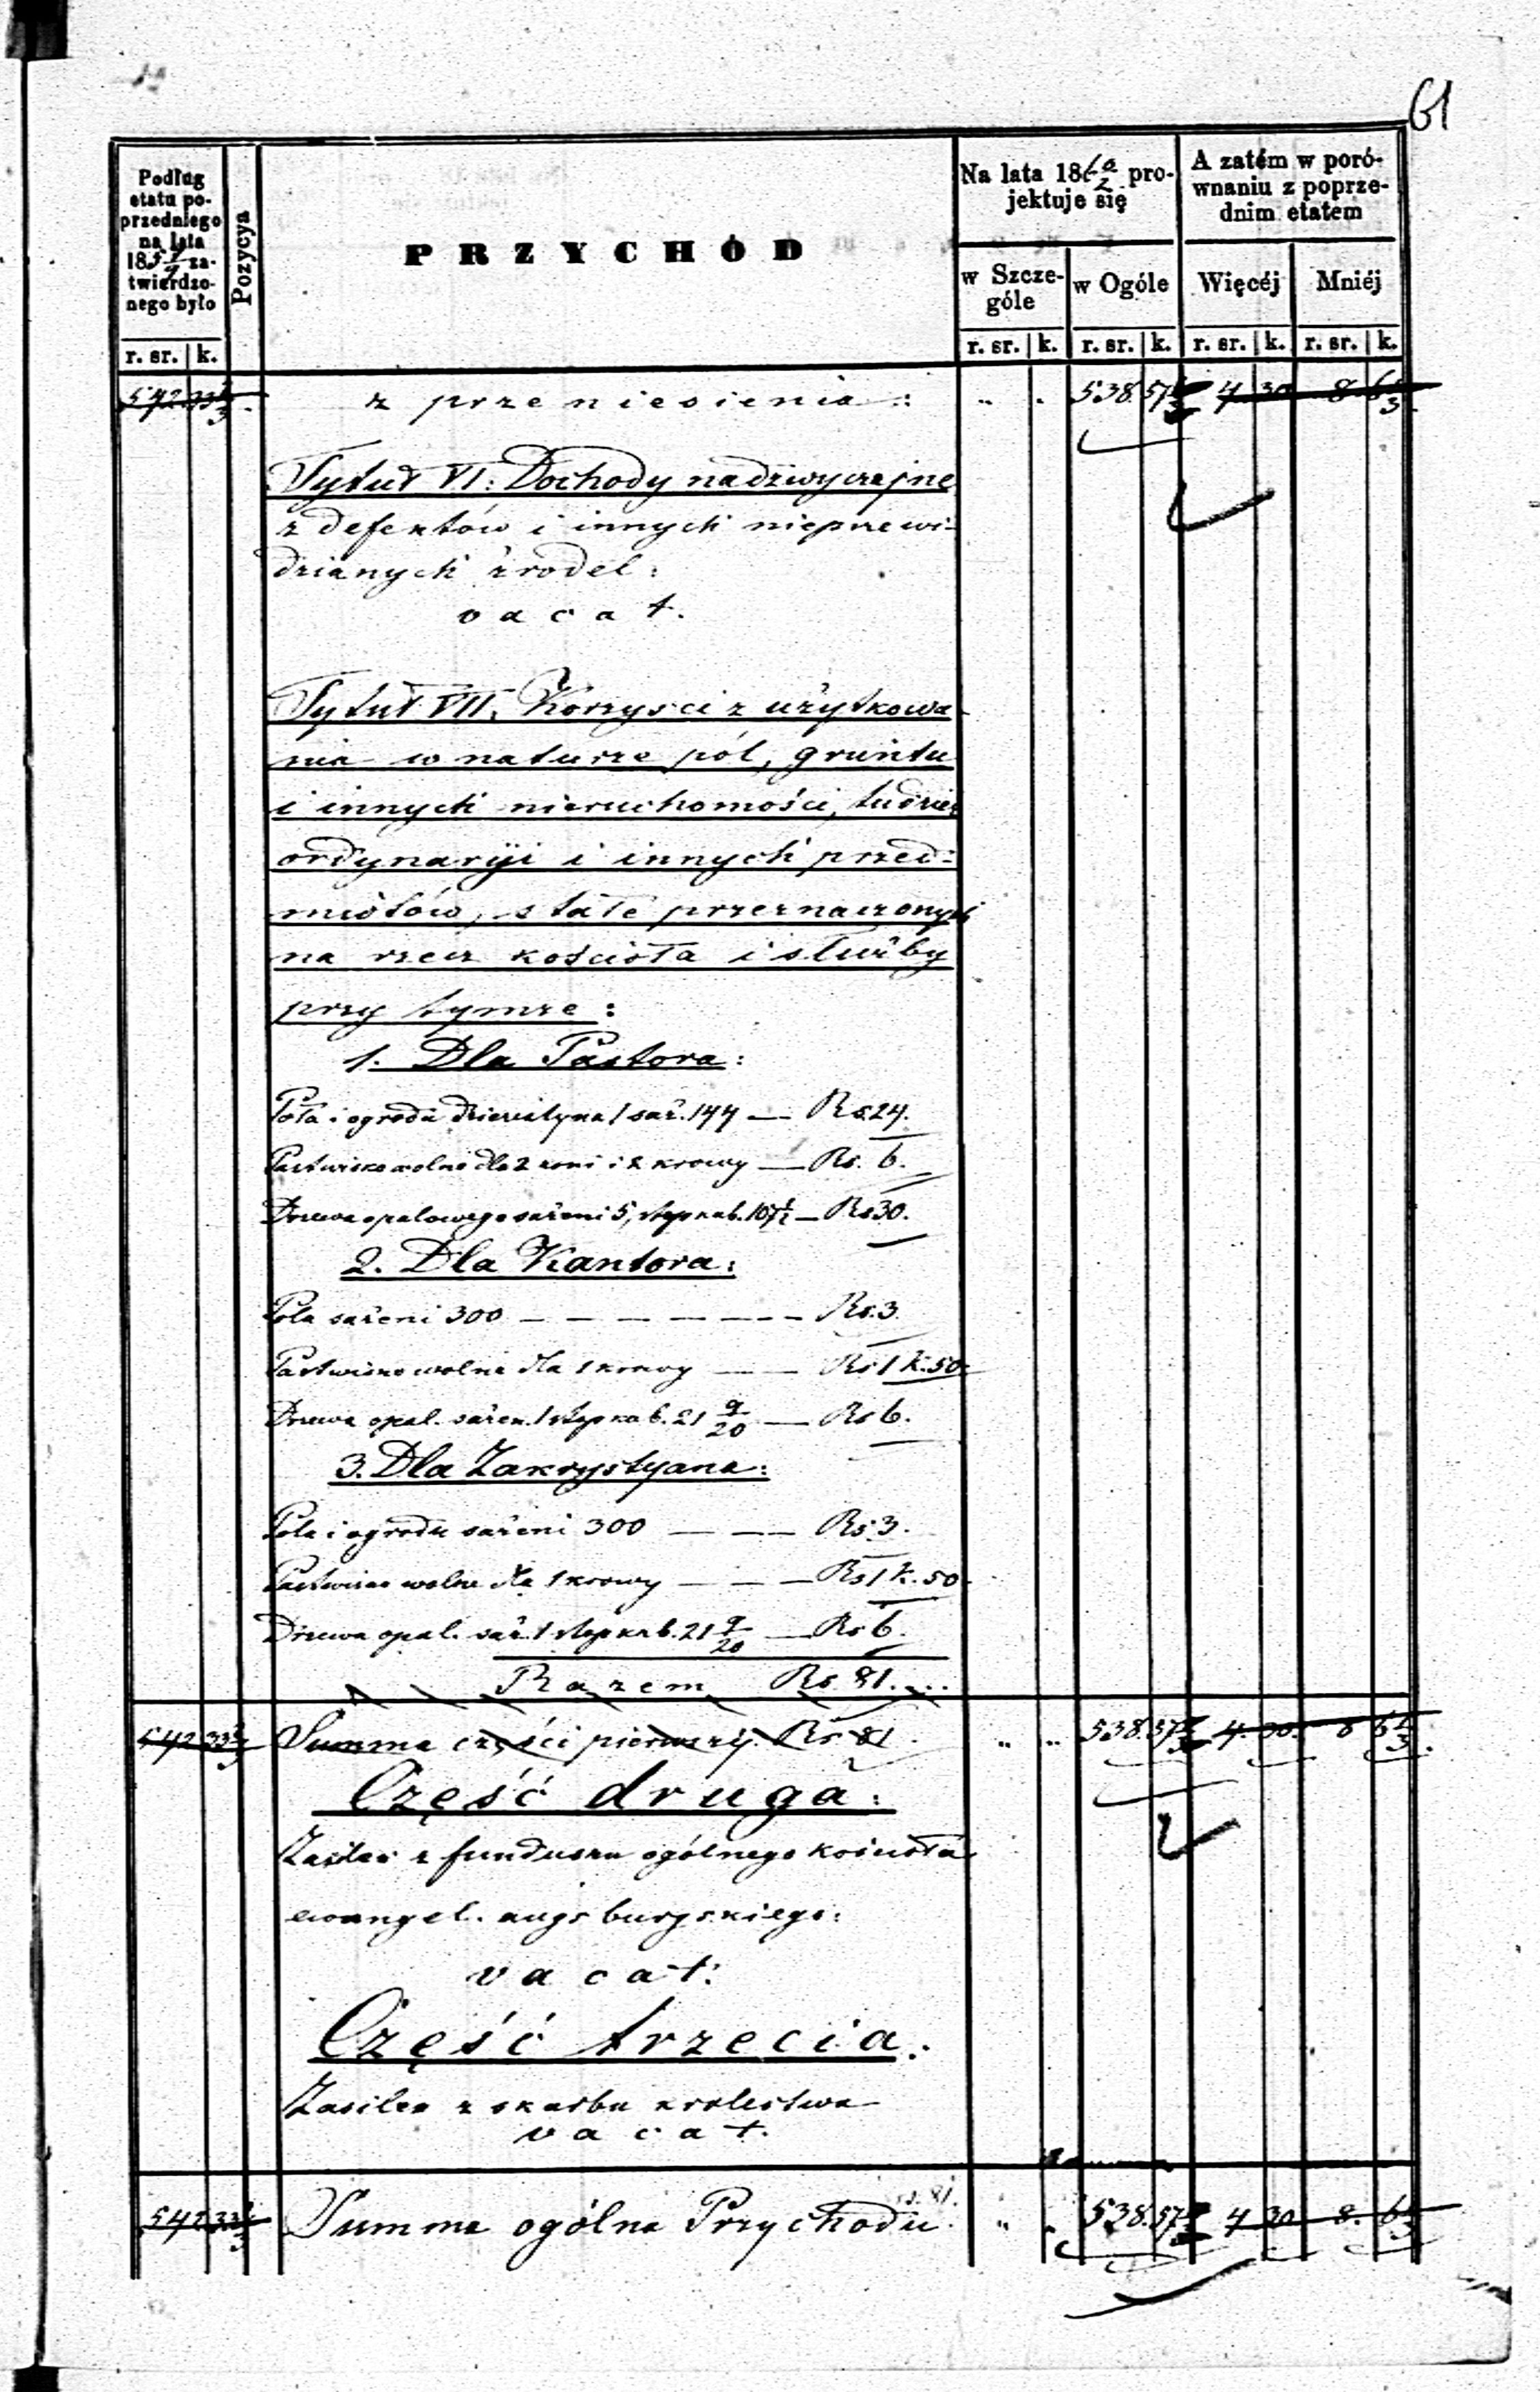 61
Podług
etatu po-
przedniego
na lata
185 7/9 za-
twierdzo-
nego było
Pozycya
PRZYCHÓD
Na lata 186 0/2 pro-
jektuje się
A zatém w poró-
wnaniu z poprze-
dnim etatem
w Szcze-
góle
w Ogóle
Więcéj
Mniéj
r. sr. k. r. sr. k. r. sr. k. r. sr. k. r. sr. k.
542. 33 z przeniesienia: 538. 57 4 30 8 6 1/3
Tytuł VI: Dochody nadzwyczajne
z defektów i innych nieprzewi-
dzianych źrodeł:
vacat.
Tytuł VII. Korzysci z użytkowa-
nia w naturze pól, gruntu
i innych nieruchomości, tudzież
ordynaryi i innych przed-
miotów, stale przeznaczonych
na rzecz kościoła i służby
przy tymże:
1. Dla Pastora:
Pola i ogrodu dziesiatyna 1 saż. 144 — Rs. 24.
Pastwisko wolne dla 2 koni i 2 krowy — Rs. 6.
Drzewa opałowego sażeni 5, stop kub. 107 1/2 — Rs 30.
2. Dla Kantora:
Pola sażeni 300 — — — — — — Rs. 3.
Pastwisko wolne dla 1 krowy — — Rs 1 k. 50.
Drzewa opal. sażen. 1 stop kub. 21 9/20 — Rs 6.
3. Dla Zakrystyana:
Pola i ogrodu sażeni 300 — — — Rs 3.
Pastwisko wolne dla 1 krowy — — — Rs 1 k. 50.
Drzewa opal. saż. 1 stop kub. 21 9/20 — Rs 6.
Razem Rs. 81.
542 33 Summa części pierwszéj. Rs. 81. 538. 57 4. 30. 8 6 1/3
Część druga:
Zasiłek z funduszu ogólnego kościoła
ewangel. augsburgskiego:
vacat:
Część trzecia:
Zasiłek z skarbu krolestwa
vacat.
542 33 Summa ogólna Przychodu. 538. 57 4 30 8. 6 1/3